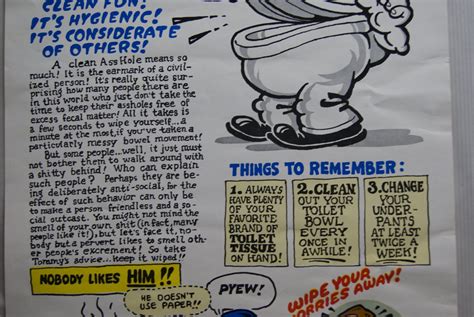 CLEAN FUN!
IT'S HYGIENIC!
IT'S CONSIDERATE
OF OTHERS!
A clean AssHole means so
much! It is the earmark of a civil-
ized person! It's really quite sur-
prising how many people there are
in this world who just don't take the
time to keep their assholes free of
excess fecal matter! All it takes is
a few seconds to wipe yourself...a
minute at the most, if you've taken a
particularly messy bowel movement!
But some people...well, it just must
not bother them to walk around with
a shitty behind! Who can explain
such people? Perhaps they are be-
ing deliberately anti-social, for the
effect of such behavior can only be
to make a person friendless and a so-
cial outcast. You might not mind the
smell of your own shit (in fact, many
people like it!), but let's face it, no-
body but a pervert likes to smell oth-
er people's excrement! So take
Tommy's advice... keep it wiped!!
THINGS TO REMEMBER:
1. ALWAYS
HAVE PLENTY
OF YOUR
FAVORITE
BRAND OF
TOILET
TISSUE
ON HAND!
2. CLEAN
OUT YOUR
TOILET
BOWL
EVERY
ONCE IN
AWHILE!
3. CHANGE
YOUR
UNDER-
PANTS
AT LEAST
TWICE A
WEEK!
NOBODY LIKES HIM!!
HE DOESN'T
USE PAPER!!
PYEW!
WIPE YOUR
WORRIES AWAY!